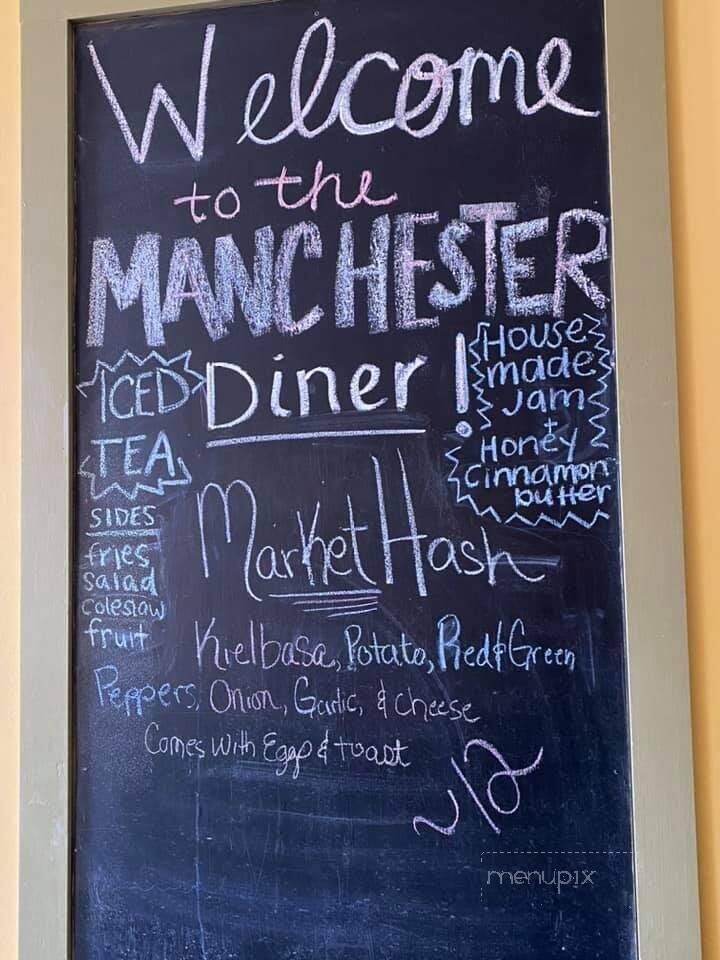 Welcome
to the
MANCHESTER
Diner!
ICED
TEA
House
made
Jam
+
Honey
Cinnamon
butter
SIDES
fries
salad
coleslaw
fruit
Market Hash
Kielbasa, Potato, Red & Green
Peppers, Onion, Garlic, & cheese
Comes with Eggs & toast
~12
menupix